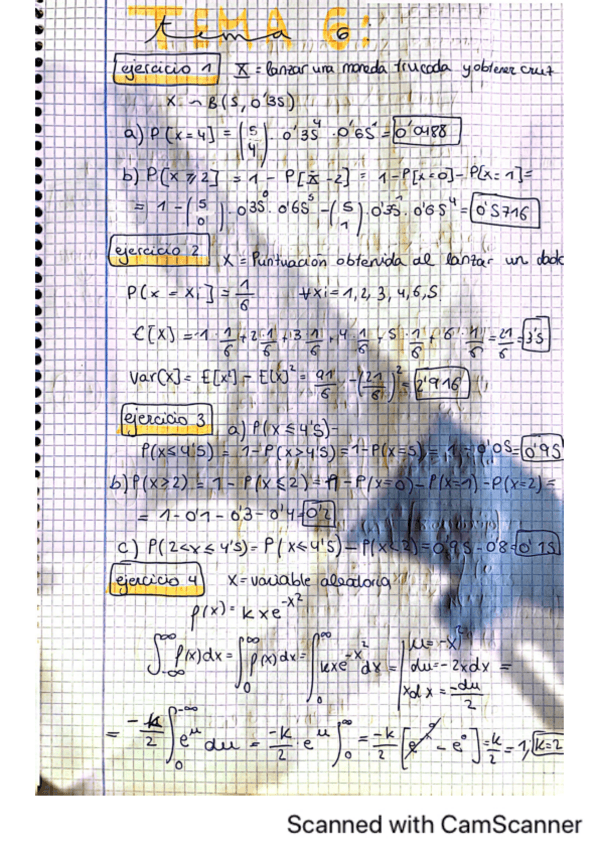 TEMA 6:
tema 6
ejercicio 1 X = lanzar una moneda trucada y obtener cruz
X ~ B(5, 0'35)
a) P[X=4] = (5 4) · 0'35^4 · 0'65 = 0'0488
b) P[X ≥ 2] = 1 - P[X < 2] = 1 - P[X=0] - P[X=1] =
= 1 - (5 0) · 0'35^0 · 0'65^5 - (5 1) · 0'35^1 · 0'65^4 = 0'5716
ejercicio 2 X = Puntuación obtenida al lanzar un dado
P[X = Xi] = 1/6 ∀xi = 1, 2, 3, 4, 6, 5
E[X] = 1 · 1/6 + 2 · 1/6 + 3 · 1/6 + 4 · 1/6 + 5 · 1/6 + 6 · 1/6 = 21/6 = 3'5
Var[X] = E[X²] - E[X]² = 91/6 - (21/6)² = 2'916
ejercicio 3 a) P(X ≤ 4'5) =
P(X ≤ 4'5) = 1 - P(X > 4'5) = 1 - P(X=5) = 1 - 0'05 = 0'95
b) P(X > 2) = 1 - P(X ≤ 2) = 1 - P(X=0) - P(X=1) - P(X=2) =
= 1 - 0'1 - 0'3 - 0'4 = 0'2
c) P(2 < X ≤ 4'5) = P(X ≤ 4'5) - P(X ≤ 2) = 0'95 - 0'8 = 0'15
ejercicio 4 X = variable aleatoria
f(x) = kxe^-x²
∫_-∞^∞ f(x)dx = ∫_0^∞ f(x)dx = ∫_0^∞ kxe^-x² dx = | u = -x² du = -2xdx xdx = -du/2 =
= -k/2 ∫_0^-∞ e^u du = -k/2 e^u ]_0^∞ = -k/2 [e^-∞ - e^0] = k/2 = 1; k=2
Scanned with CamScanner